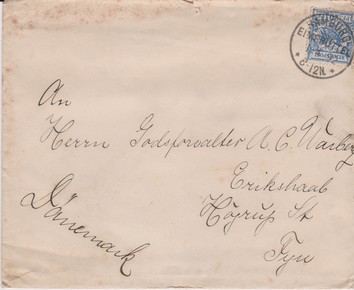 An
Herrn Godsforvalter A. C. Warberg
Erikshaab
Højrup St
Fyn
Dänemark